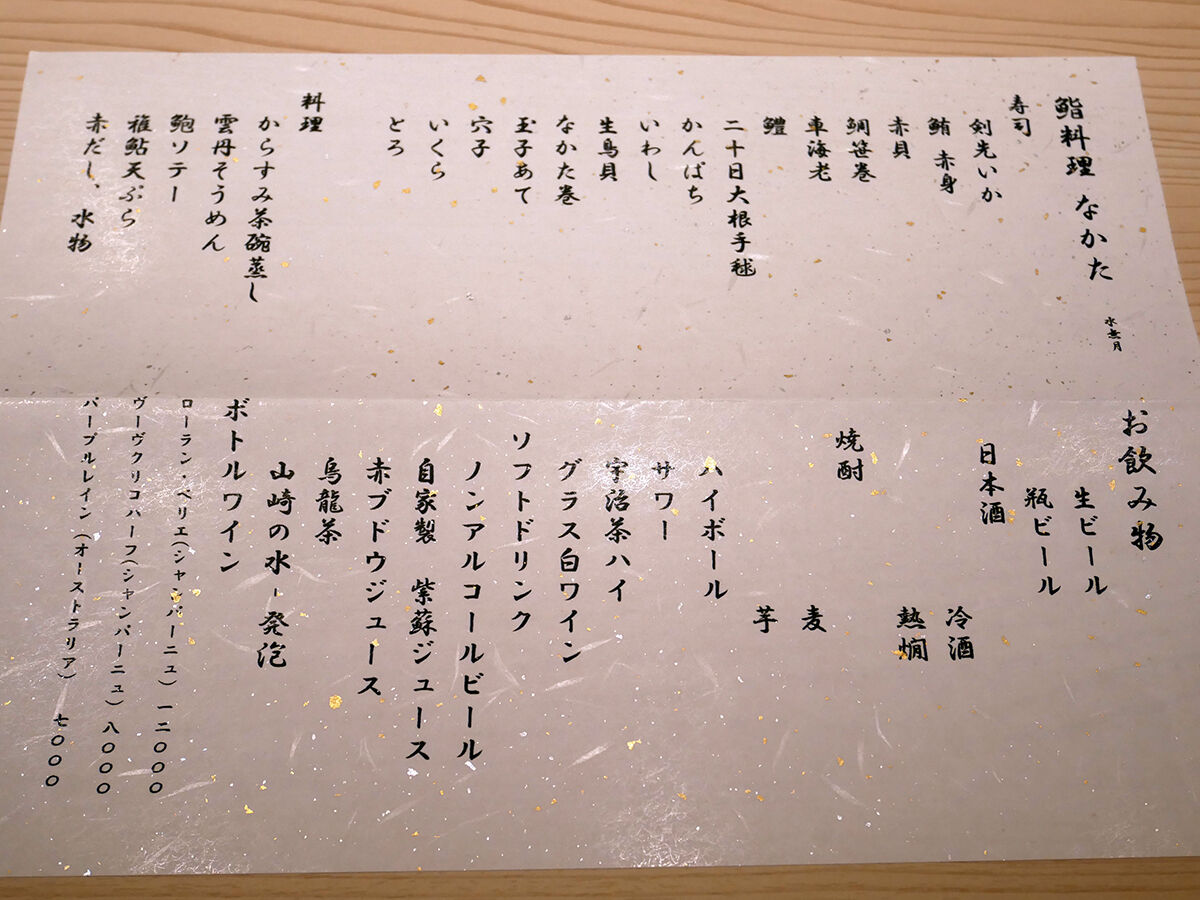 鮨料理 なかた
水無月
寿司
剣先いか
鮪 赤身
赤貝
鯛笹巻
車海老
鱧
二十日大根手毬
かんぱち
いわし
生鳥貝
なかた巻
玉子あて
穴子
いくら
とろ
料理
からすみ茶碗蒸し
雲丹そうめん
鮑ソテー
稚鮎天ぷら
赤だし、水物
お飲み物
生ビール
瓶ビール
日本酒
冷酒
熱燗
焼酎
麦
芋
ハイボール
サワー
宇治茶ハイ
グラス白ワイン
ソフトドリンク
ノンアルコールビール
自家製 紫蘇ジュース
赤ブドウジュース
烏龍茶
山崎の水-発泡
ボトルワイン
ローラン・ペリエ(シャンパーニュ)一二〇〇〇
ヴーヴクリコハーフ(シャンパーニュ)八〇〇〇
パープルレイン(オーストラリア) 七〇〇〇